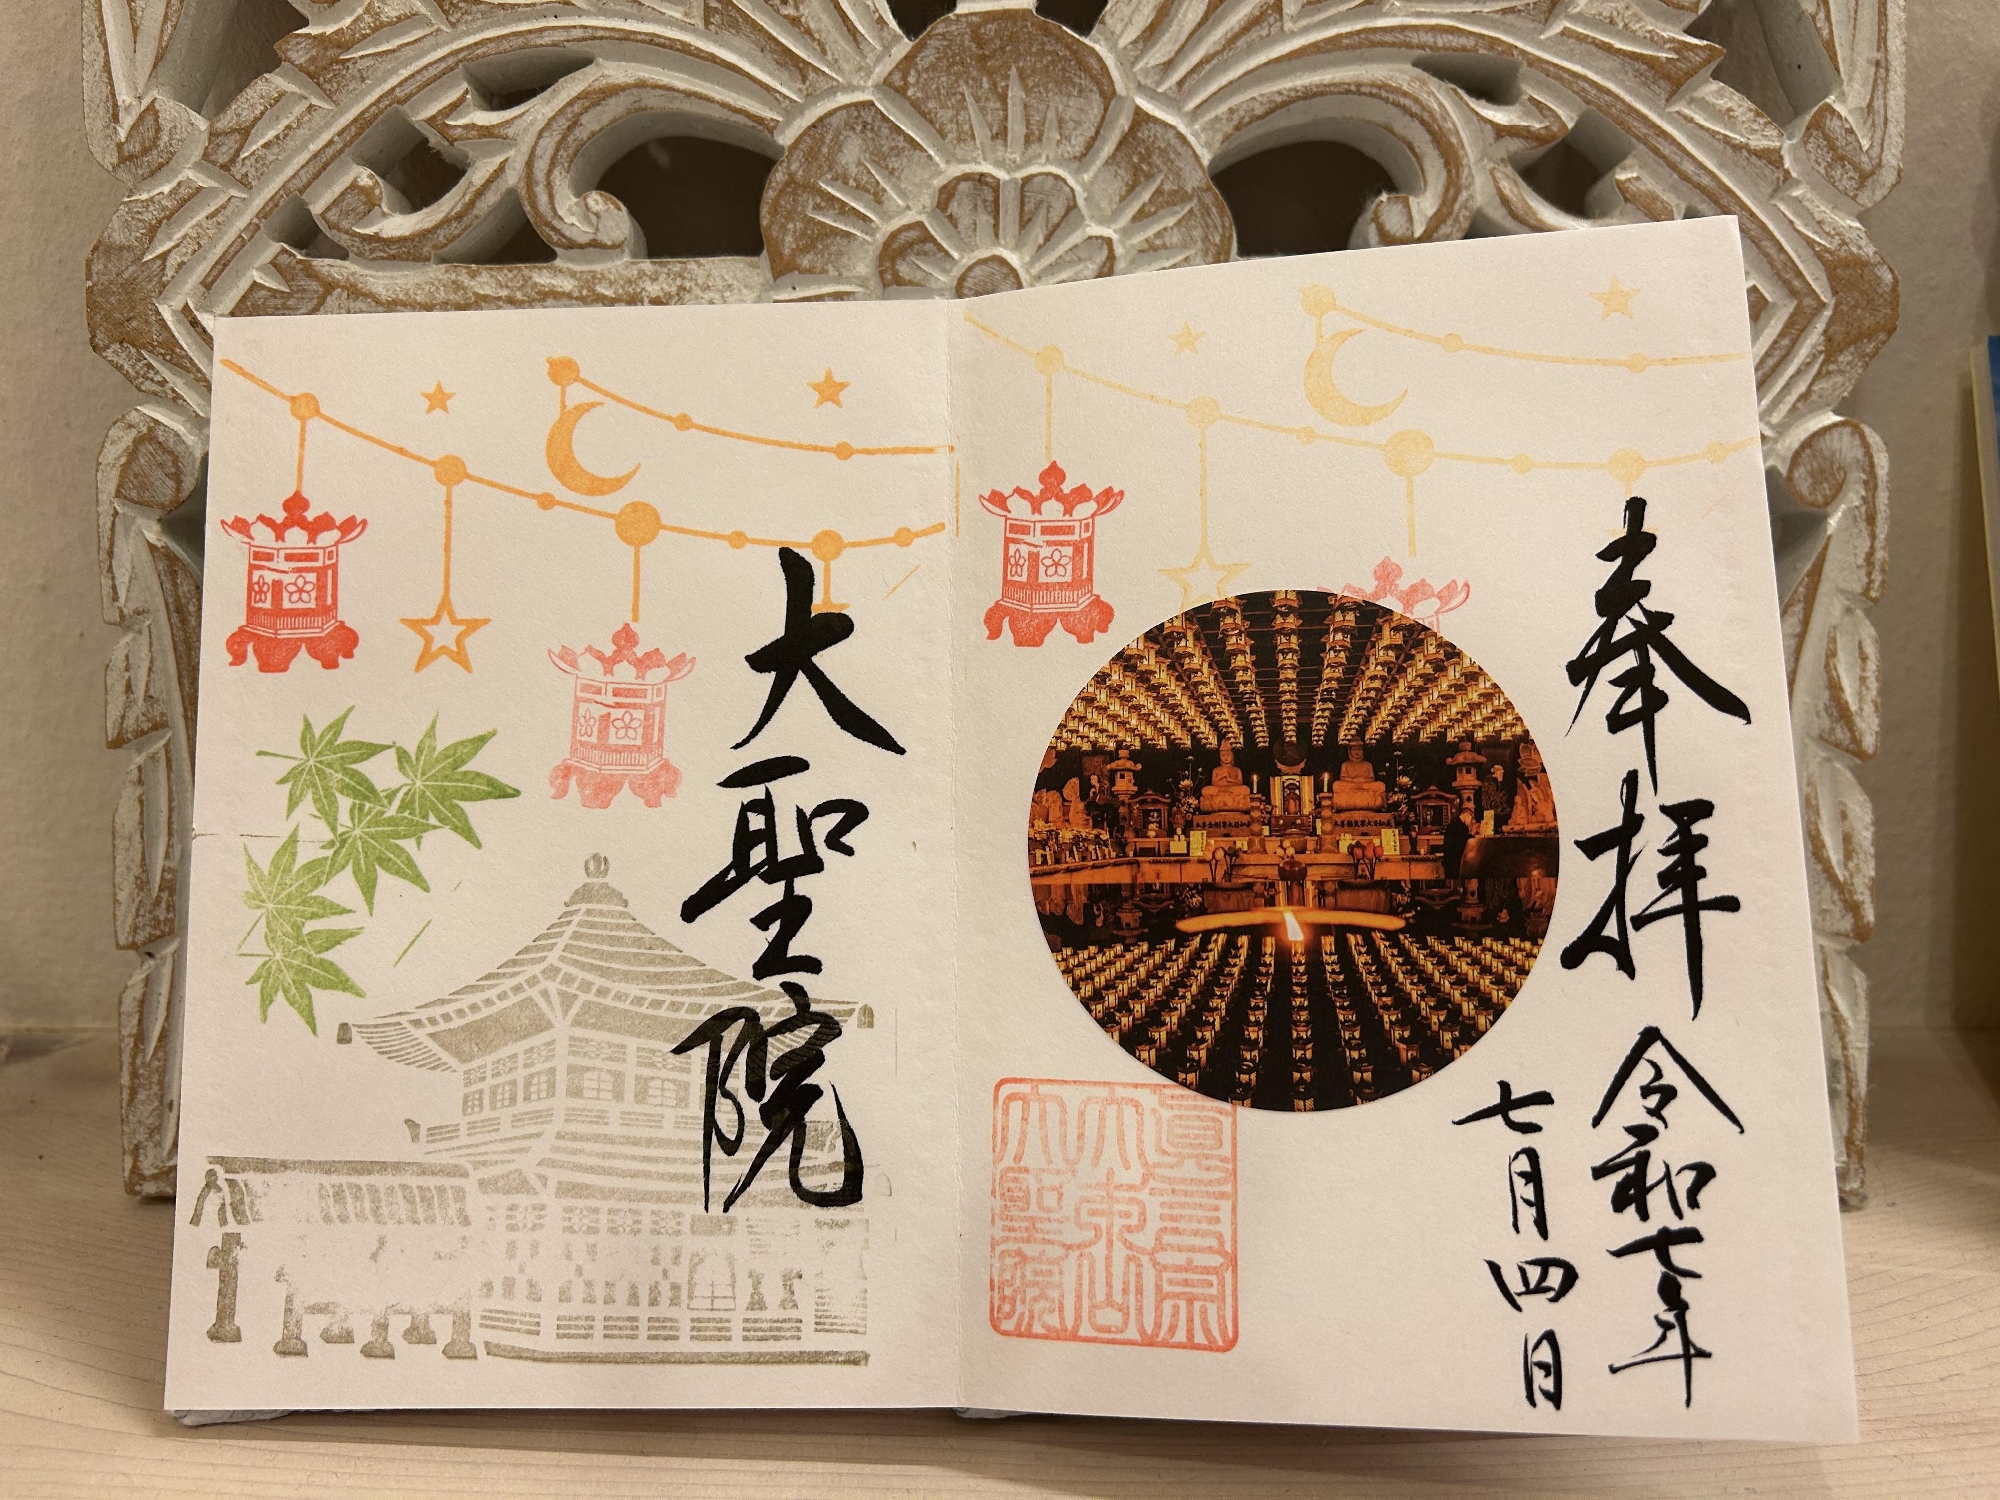 奉拝
令和七年
七月四日
眞言宗
大本山
大聖院
大聖院